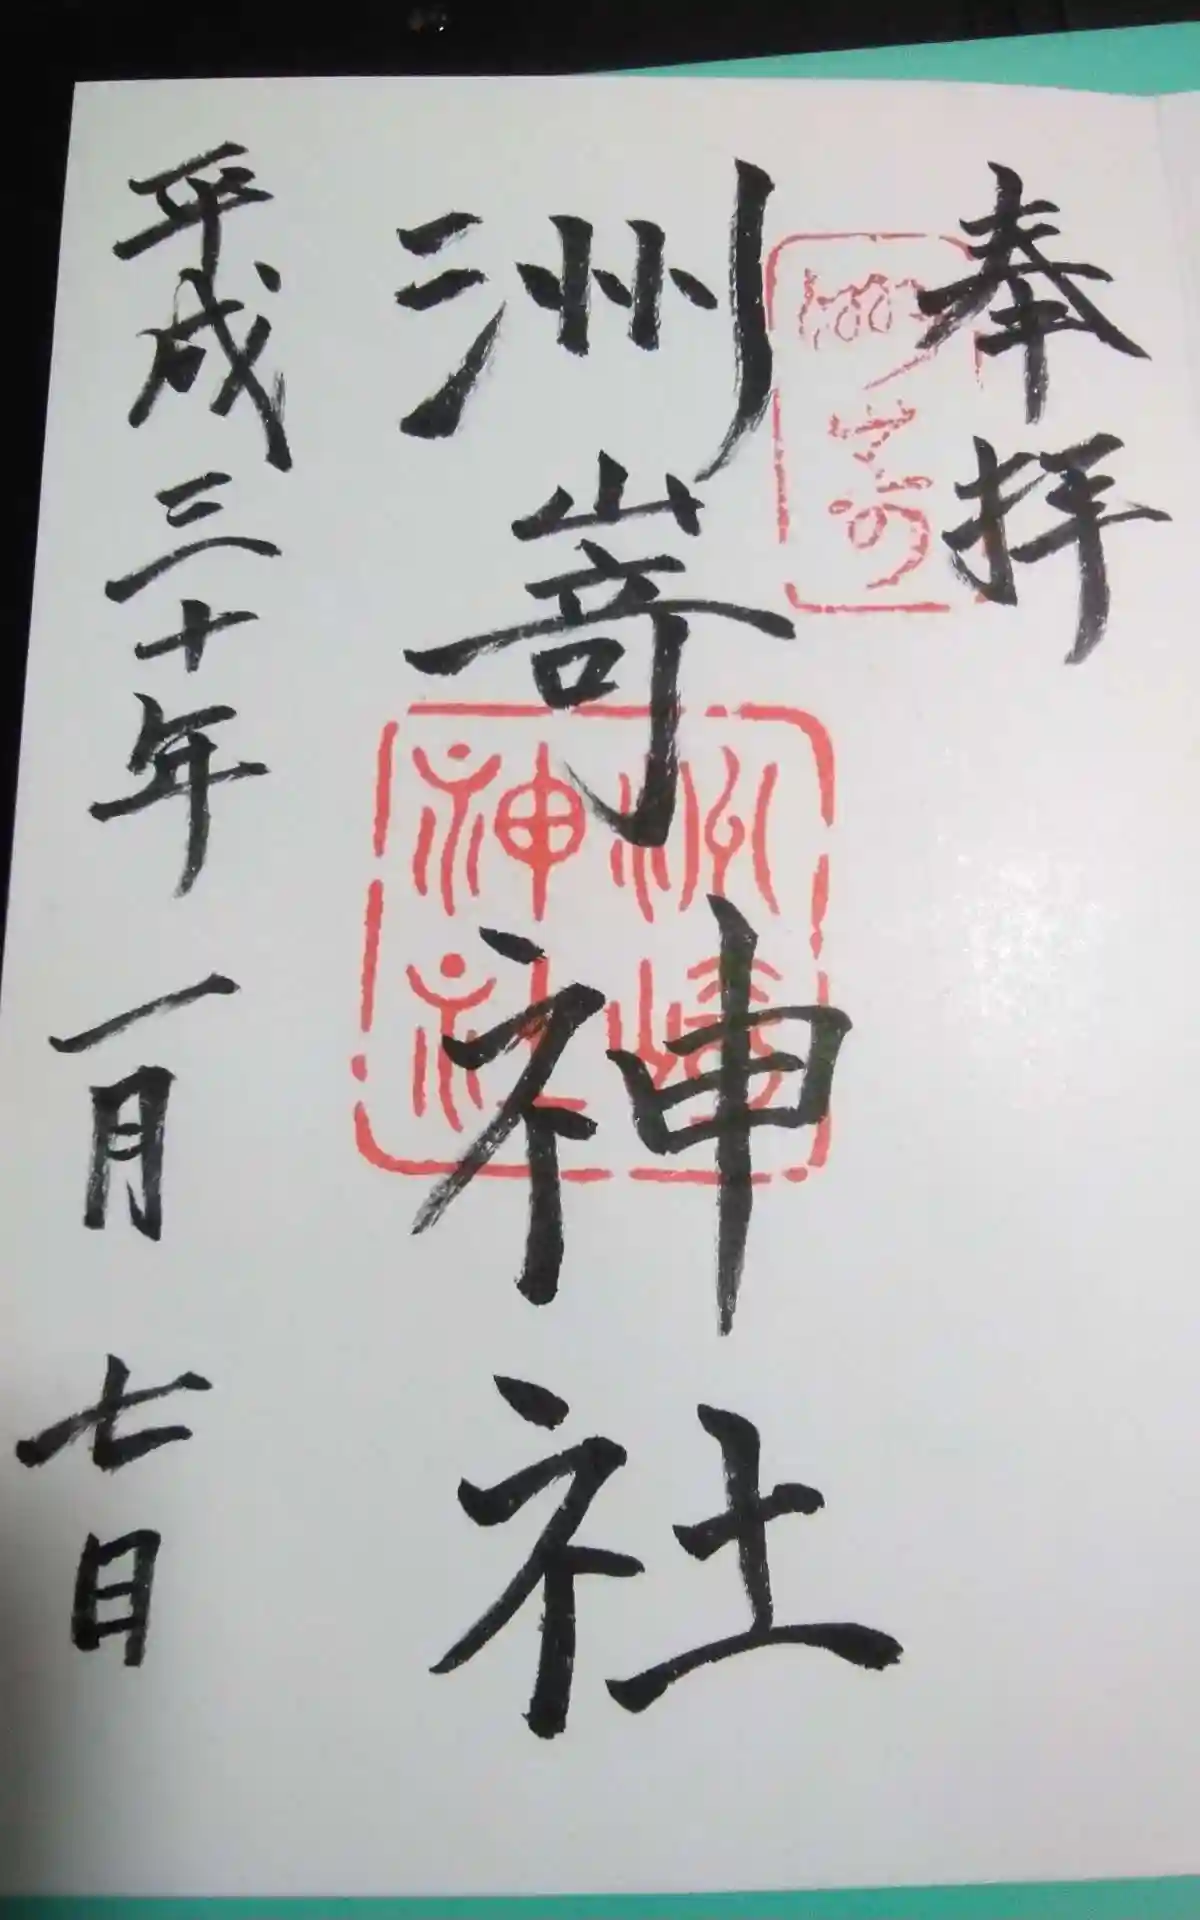 奉拝
洲嵜神社
洲崎
神社
平成三十年一月七日